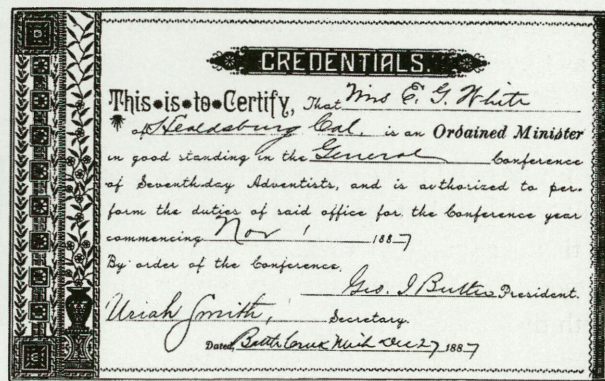 CREDENTIALS.
This is to Certify, That Mrs E. G. White
of Healdsburg Cal. is an Ordained Minister
in good standing in the General Conference
of Seventh-day Adventists, and is authorized to per-
form the duties of said office for the Conference year
commencing Nov 1 1887
By order of the Conference.
Geo. I Butler President.
Uriah Smith, Secretary
Dated, Battle Creek Mich Dec 27 1887